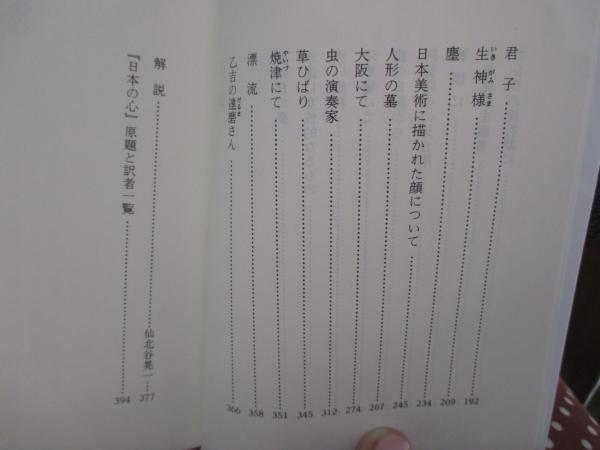 君子 192
生神様 209
いき がみ さま
塵 234
日本美術に描かれた顔について 245
人形の墓 267
大阪にて 274
虫の演奏家 312
草ひばり 345
焼津にて 351
やいづ
漂流 358
乙吉の達磨さん 366
だるま
解説 仙北谷晃一 377
『日本の心』原題と訳者一覧 394